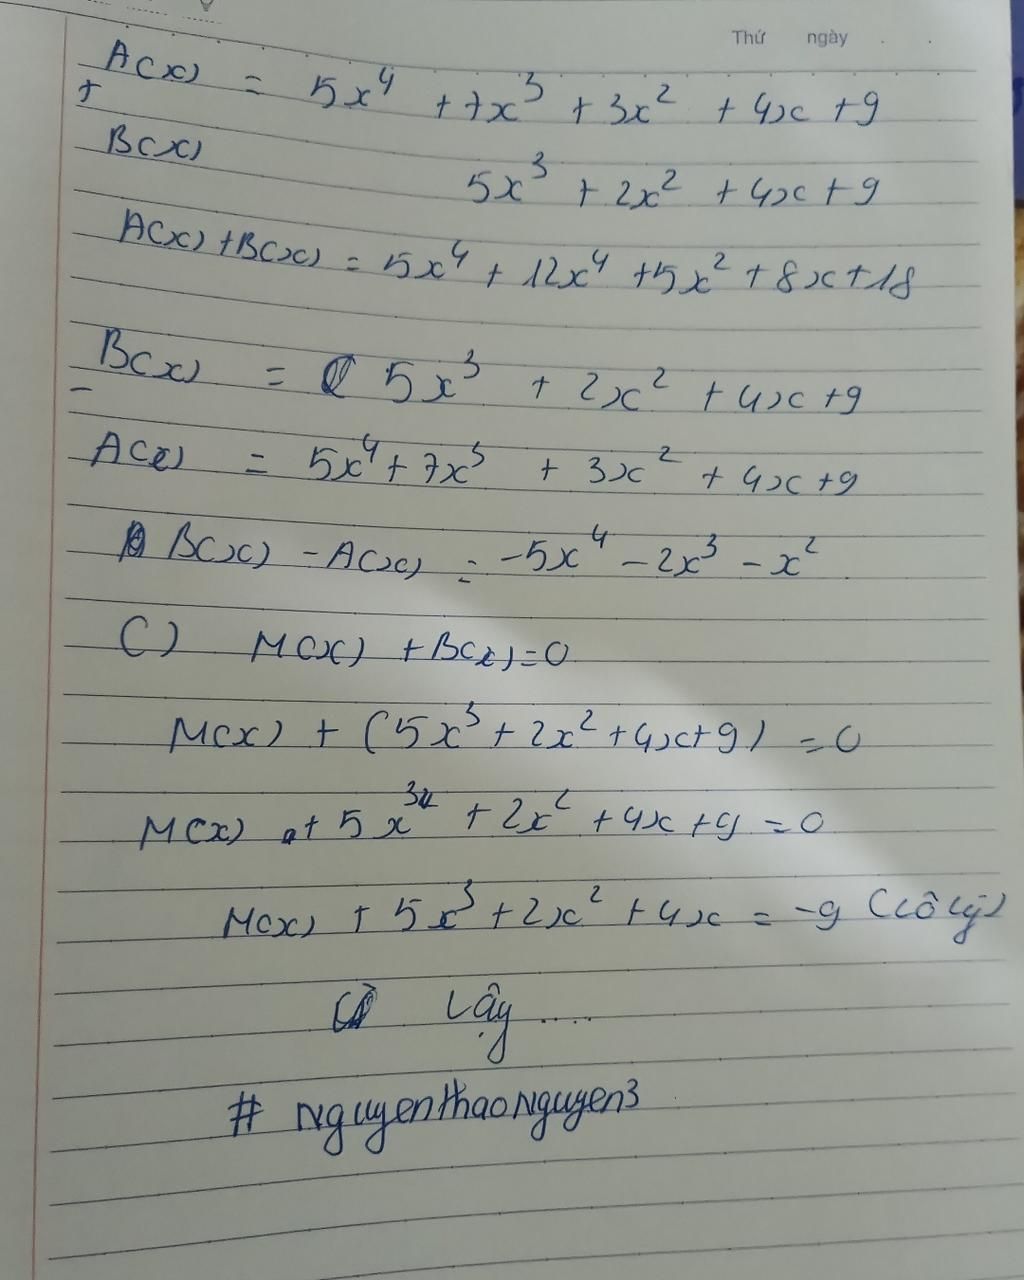 Thứ ngày
A(x) = 5x⁴ + 7x³ + 3x² + 4x + 9
+
B(x) 5x³ + 2x² + 4x + 9
A(x) + B(x) = 5x⁴ + 12x⁴ + 5x² + 8x + 18
B(x) = 5x³ + 2x² + 4x + 9
-
A(x) = 5x⁴ + 7x³ + 3x² + 4x + 9
B(x) - A(x) = -5x⁴ - 2x³ - x²
C) M(x) + B(x) = 0
M(x) + (5x³ + 2x² + 4x + 9) = 0
M(x) + 5x³ + 2x² + 4x + 9 = 0
M(x) + 5x³ + 2x² + 4x = -9 (Vô lý)
Vậy ....
# nguyenthaonguyen3